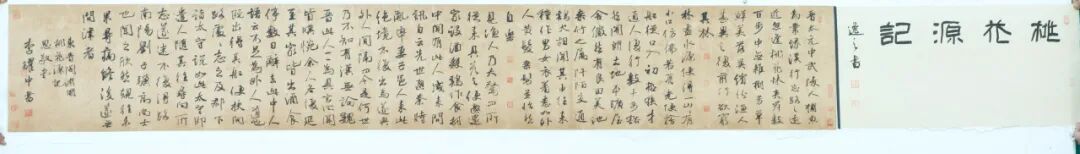 桃花源記
晉太元中武陵人捕魚
為業緣溪行忘路之遠
近忽逢桃花林夾岸數
百步中無雜樹芳草
鮮美落英繽紛漁人
甚異之復前行欲窮
其林
林盡水源便得一山山有
小口仿佛若有光便捨
船從口入初極狹才
通人復行數十步豁
然開朗土地平曠屋
舍儼然有良田美池
桑竹之屬阡陌交通
雞犬相聞其中往來
種作男女衣著悉如外
人黃髮垂髫並怡然
自樂
見漁人乃大驚問所
從來具答之便要還
家設酒殺雞作食村
中聞有此人咸來問
訊自云先世避秦時
亂率妻子邑人來此
絕境不復出焉遂與
外人間隔問今是何世
乃不知有漢無論魏
晉此人一一為具言所聞
皆歎惋餘人各復延
至其家皆出酒食
停數日辭去此中人
語云不足為外人道也
既出得其船便扶向
路處處志之及郡下
詣太守說如此太守即
遣人隨其往尋向所
志遂迷不復得路
南陽劉子驥高尚士
也聞之欣然規往未
果尋病終後遂無
問津者
東晉陶淵明
桃花源記
李耀中書